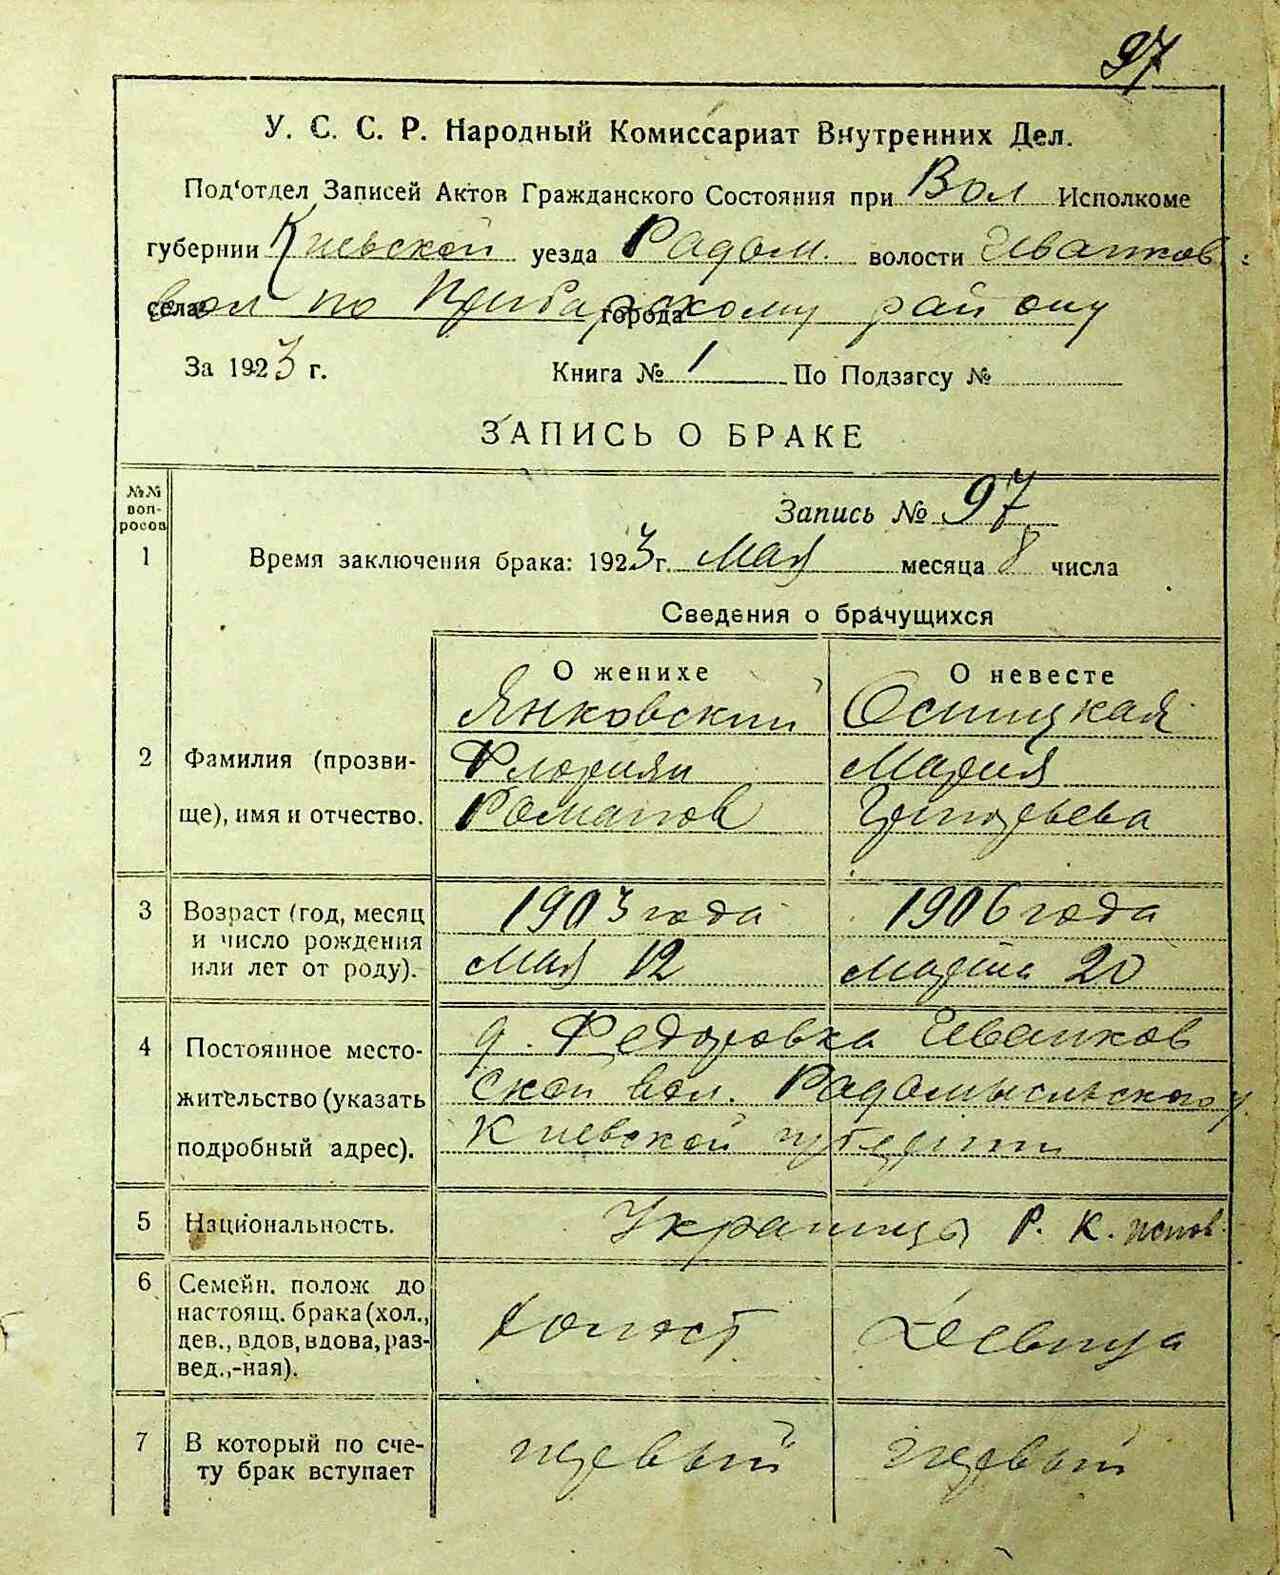 97
У. С. С. Р. Народный Комиссариат Внутренних Дел.
Под‘отдел Записей Актов Гражданского Состояния при Вол Исполкоме
губернии Киевской уезда Радом. волости Иванков
села города по району
За 1923 г. Книга № 1 По Подзагсу №
ЗАПИСЬ О БРАКЕ
№№ воп-росов
Запись № 97
1 Время заключения брака: 1923 г. Мая месяца 8 числа
Сведения о брачущихся
О женихе О невесте
Янковский Осицкая
2 Фамилия (прозви- Флориян Мария
ще), имя и отчество. Романов Григорьева
3 Возраст (год, месяц 1903 года 1906 года
и число рождения
или лет от роду). Мая 12 Марта 20
д. Федоровка Иванков
4 Постоянное место-
жительство (указать ской вол. Радомысльского у
подробный адрес). Киевской губернии
5 Национальность. Украинцы Р. К. испов.
6 Семейн. полож до
настоящ. брака (хол., холост Девица
дев., вдов, вдова, раз-
вед.,-ная).
7 В который по сче- первый первый
ту брак вступает